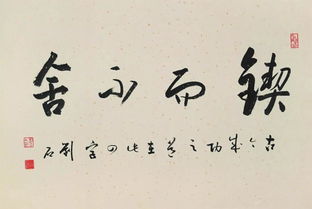 鍥而不舍
古今成功之道在此四字 劉石